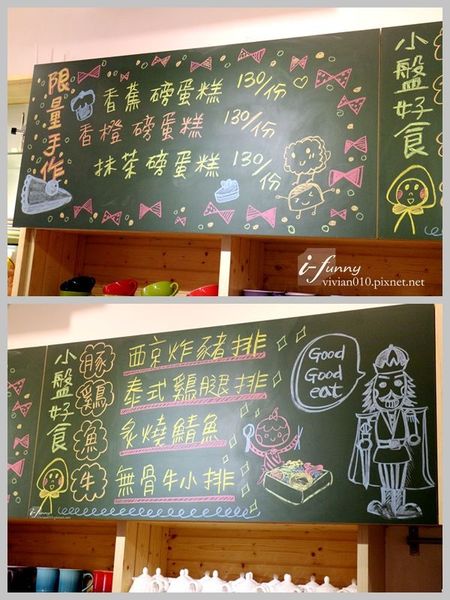 限量手作
香蕉磅蛋糕 130/份
香橙磅蛋糕 130/份
抹茶磅蛋糕 130/份
小盤好食
i-funny
vivian010.pixnet.net
小盤好食
豚 西京炸豬排
鶏 泰式鶏腿排
魚 炙燒鯖魚
牛 無骨牛小排
Good
Good
eat